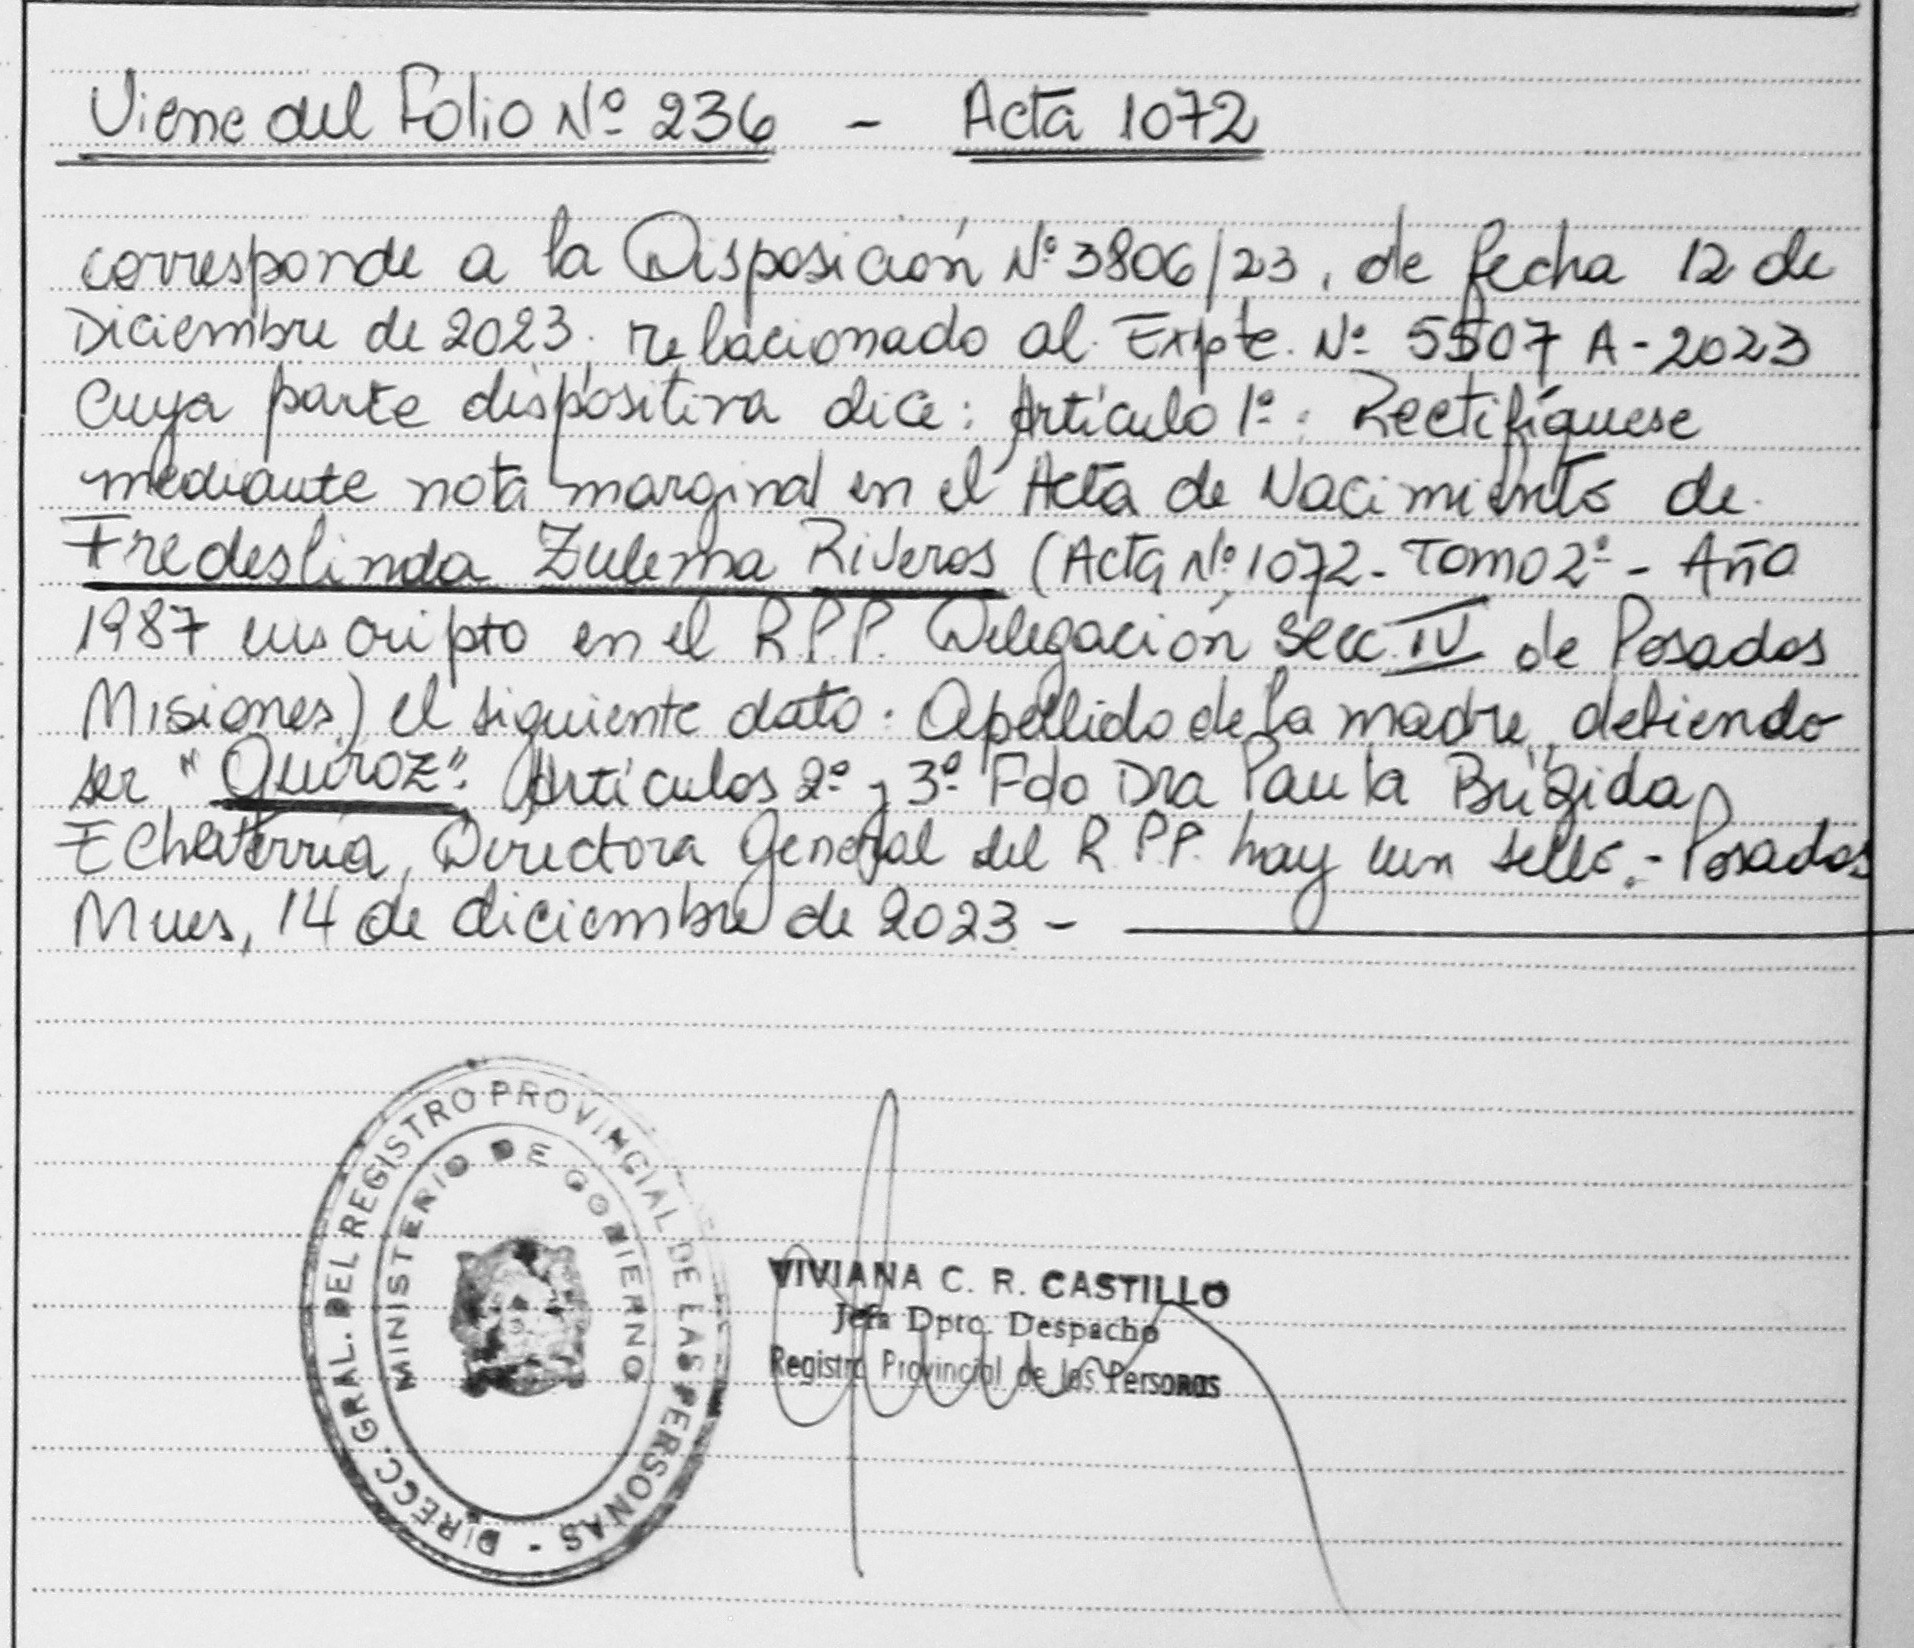 Viene del Folio Nº 236 - Acta 1072
corresponde a la Disposición Nº 3806/23, de fecha 12 de
Diciembre de 2023. relacionado al. Expte. Nº 5507 A - 2023
Cuya parte dispositiva dice: Artículo 1º: Rectifíquese
mediante nota marginal en el Acta de Nacimiento de
Fredeslinda Zulema Riveros (Acta Nº 1072 - Tomo 2º - Año
1987 inscripto en el R.P.P. Delegación Secc IV de Posadas
Misiones) el siguiente dato: Apellido de la madre, debiendo
ser "Quiroz". Artículos 2º y 3º Fdo Dra Paula Brígida
Echeverría, Directora General del R.P.P. hay un sello.- Posadas
Mnes, 14 de diciembre de 2023 -
DIRECC. GRAL. DEL REGISTRO PROVINCIAL DE LAS PERSONAS -
MINISTERIO DE GOBIERNO
VIVIANA C. R. CASTILLO
Jefa Dpto. Despacho
Registro Provincial de las Personas